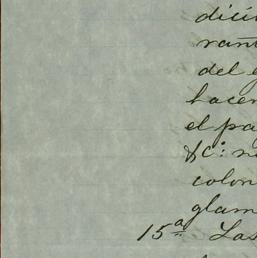 dici
rant
del e
hacer
el pa
&C: n
colon
glam
15ª Las